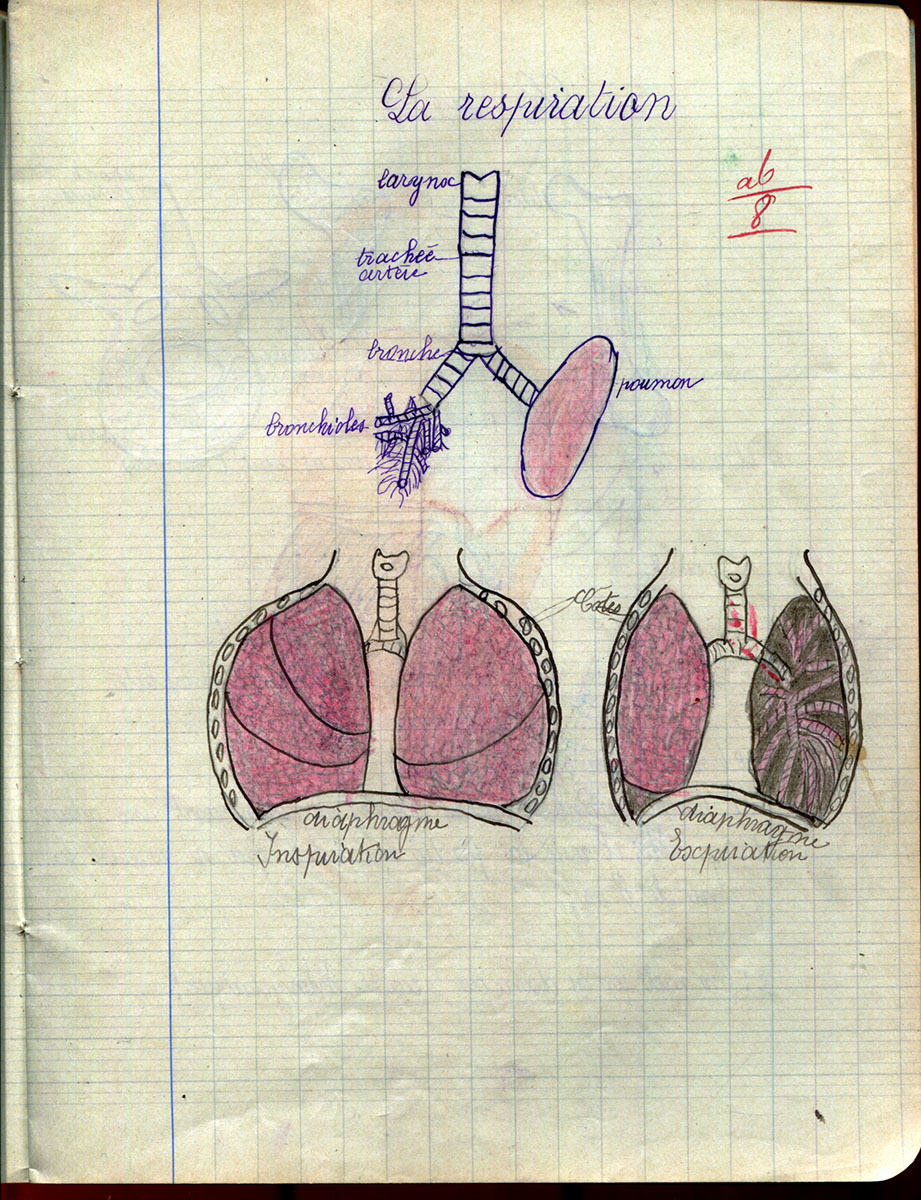 La respiration
ab
8
larynx
trachée
artère
bronche
poumon
bronchioles
Côtes
diaphragme
Inspiration
diaphragme
Expiration